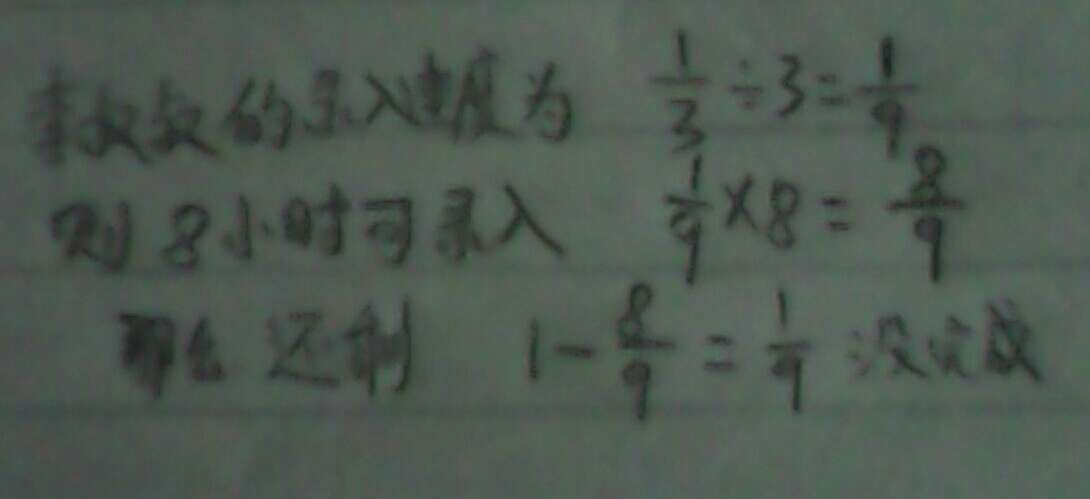 李叔叔的录入速度为 1/3÷3=1/9
则8小时可录入 1/9×8=8/9
那么还剩 1-8/9=1/9没完成